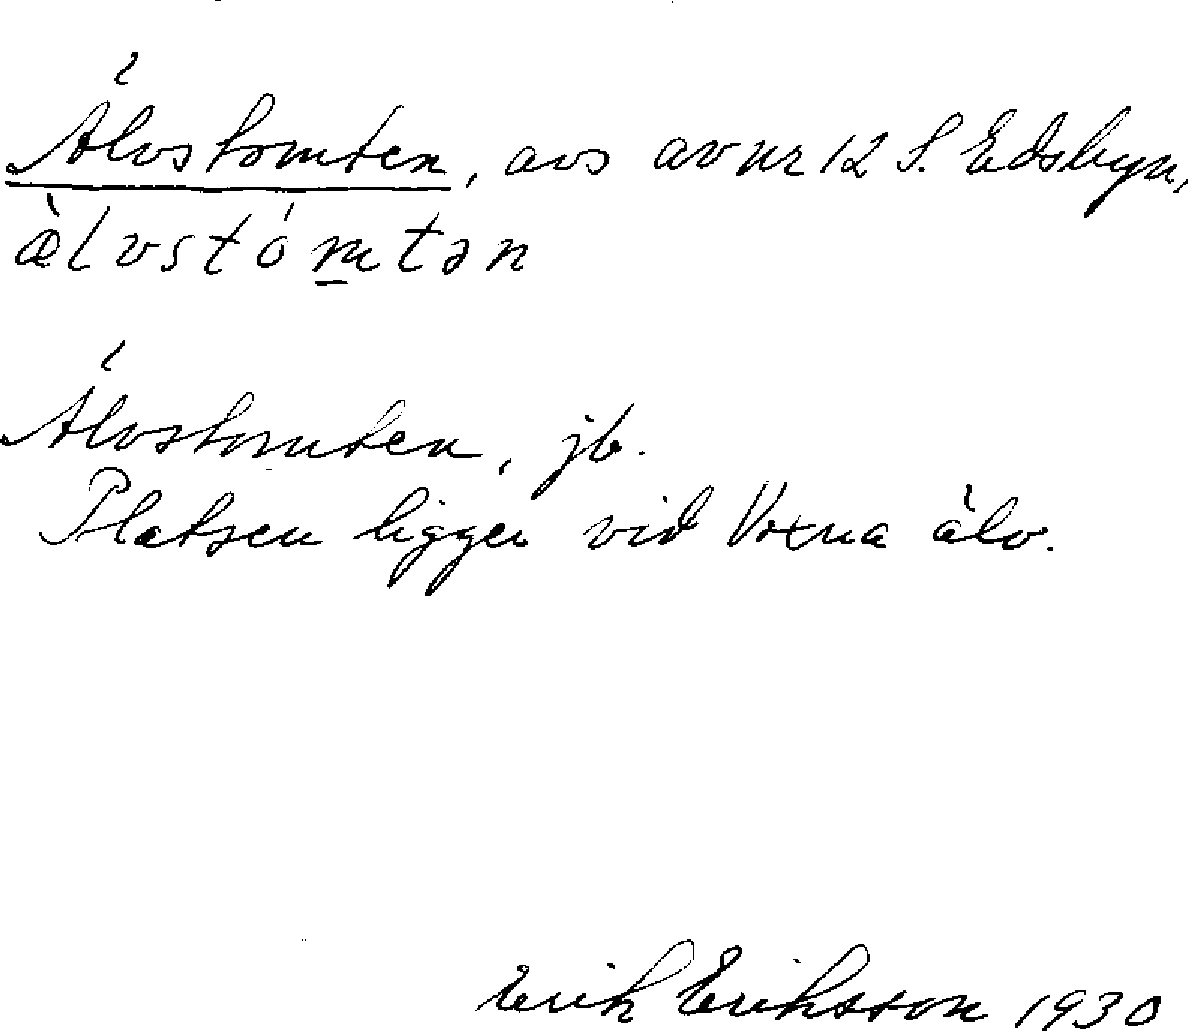 Älvstomten, avs av nr 12 S. Edsbyn,
æ̀lvstómtən
Älvstomten, jb.
Platsen ligger vid Voxna älv.
Erik Eriksson 1930